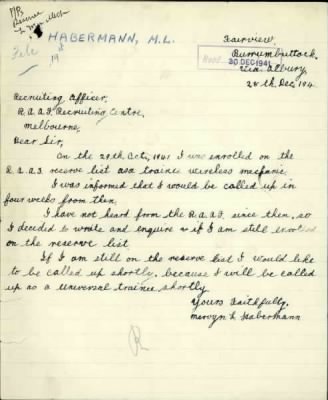 HABERMANN, M.L.
Fairview,
Burrumbuttock,
Recd. 30 DEC 1941
Via Albury,
28th Dec, 194
Recruiting Officer,
R.A.A.F. Recruiting Centre,
Melbourne.
Dear Sir,
On the 29th Oct, 1941 I was enrolled on the
R.A.A.F. reserve list as a trainee wireless mechanic.
I was informed that I would be called up in
four weeks from then.
I have not heard from the R.A.A.F. since then, so
I decided to write and enquire if I am still enrolled
on the reserve list.
If I am still on the reserve list I would like
to be called up shortly, because I will be called
up as a universal trainee shortly.
Yours Faithfully,
Mervyn L. Habermann
R